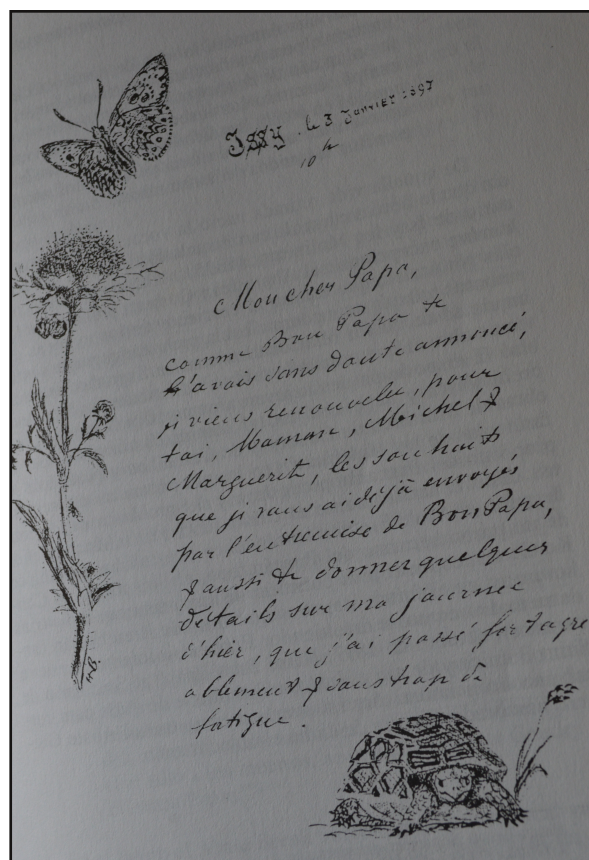 Issy, le 3 Janvier 1897
10 h
Mon cher Papa,
comme Bon Papa te
l'avais sans doute annoncé,
ji viens renouveler, pour
toi, Maman, Michel &
Marguerite, les souhaits
que ji vous ai déjà envoyés
par l'entremise de Bon Papa,
& aussi te donner quelques
détails sur ma journée
d'hier, que j'ai passé fort agré
ablement & sans trop de
fatigue.